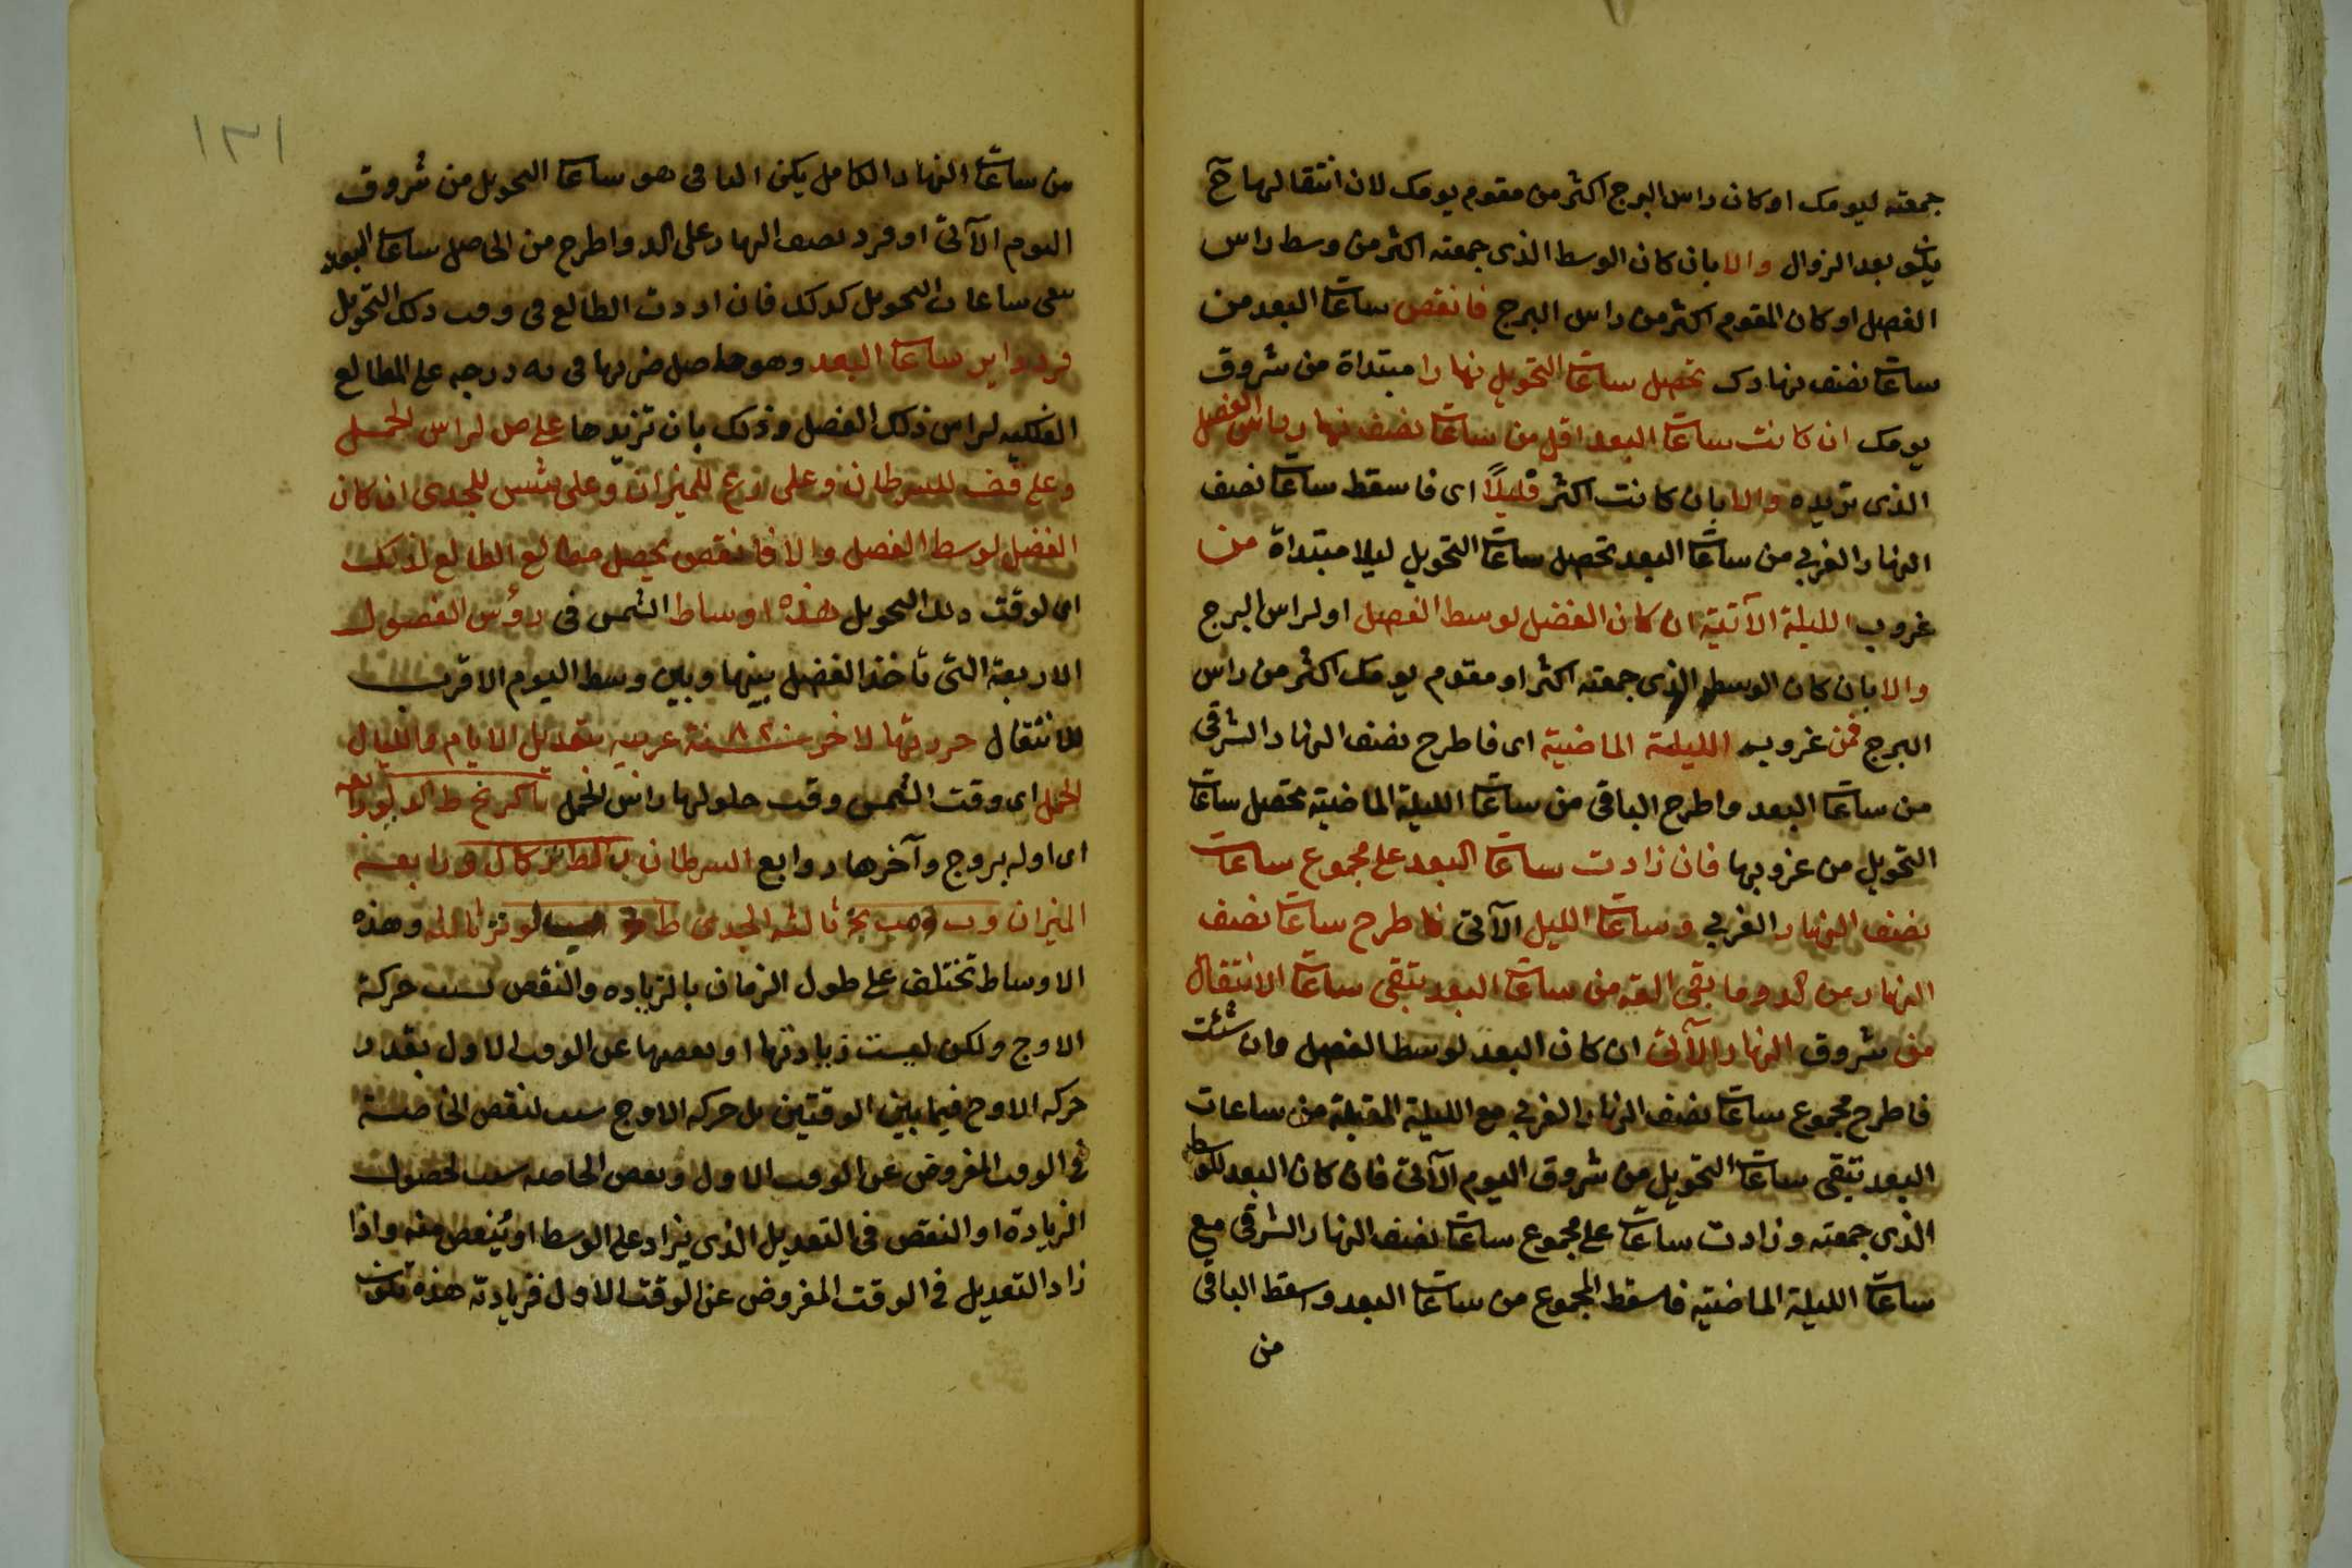 جمعته ليومك او كان راس البرج اكثر من مقوم يومك لان انتقالها ح
يكون بعد الزوال والا بان كان الوسط الذى جمعته اكثر من وسط راس
الفصل او كان المقوم اكثر من راس البرج فانقص ساعات البعد من
ساعات نصف نهارك تحصل ساعات التحويل نهارا مبتداة من شروق
يومك ان كانت ساعات البعد اقل من ساعات نصف نهار راس الفصل
الذى تريده والا بان كانت اكثر قليلاً اى فاسقط ساعات نصف
النهار الغربي من ساعات البعد تحصل ساعات التحويل ليلا مبتداة من
غروب الليلة الآتية ان كان الفضل لوسط الفصل او لراس البرج
والا بان كان الوسط الذى جمعته اكثر او مقوم يومك اكثر من راس
البرج فمن غروب الليلة الماضية اى فاطرح نصف النهار الشرقى
من ساعات البعد واطرح الباقى من ساعات الليلة الماضية تحصل ساعات
التحويل من غروبها فان زادت ساعات البعد على مجموع ساعات
نصف النهار الغربي وساعات الليل الآتى فاطرح ساعات نصف
النهار من كد وما بقى القه من ساعات البعد تبقى ساعات الانتقال
من شروق النهار الآتى ان كان البعد لوسط الفصل وان شئت
فاطرح مجموع ساعات نصف النهار الغربي مع الليلة المقبلة من ساعات
البعد تبقى ساعات التحويل من شروق اليوم الآتى فان كان البعد للوسط
الذى جمعته وزادت ساعات على مجموع ساعات نصف النهار الشرقى مع
ساعات الليلة الماضية فاسقط المجموع من ساعات البعد واسقط الباقى
من
١٣١
من ساعات النهار الكامل يكن الباقى هو ساعات التحويل من شروق
اليوم الآتى او فزد نصف النهار على كد واطرح من الحاصل ساعات البعد
تبقى ساعات التحويل كذلك فان اردت الطالع فى وقت ذلك التحويل
فزد داير ساعات البعد وهو حاصل ضربها فى يه درجه على المطالع
الفلكيه لراس ذلك الفصل وذلك بان تزيدها على ص لراس الحمل
وعلى قف للسرطان وعلى رع للميزان وعلى شس للجدى ان كان
الفضل لوسط الفصل والا فانقص يحصل مطالع الطالع لذلك
اى لوقت ذلك التحويل هذه اوساط الشمس فى رؤس الفصول
الاربعة التى تأخذ الفضل بينها وبين وسط اليوم الاقرب
للانتقال حررتها لاخر سنة عربيه بتعديل الايام والليال
الحمل اى وقت الشمس وقت حلولها راس الحمل
اى اوله بروج وآخرها روابع السرطان ورابعة
الميزان ثالثه الجدى ثالثه وهذه
الاوساط تختلف على طول الزمان بالزياده والنقص بسبب حركة
الاوج ولكن ليست زيادتها او نقصها عن الوقت الاول بقدر
حركه الاوج فيما بين الوقتين بل حركه الاوج سبب لنقص الخاصة
فى الوقت المفروض عن الوقت الاول ونقص الخاصه سبب لحصول
الزيادة او النقص فى التعديل الذى يزاد على الوسط او ينقص منه واذا
زاد التعديل فى الوقت المفروض عن الوقت الاول فزيادته هذه تكون